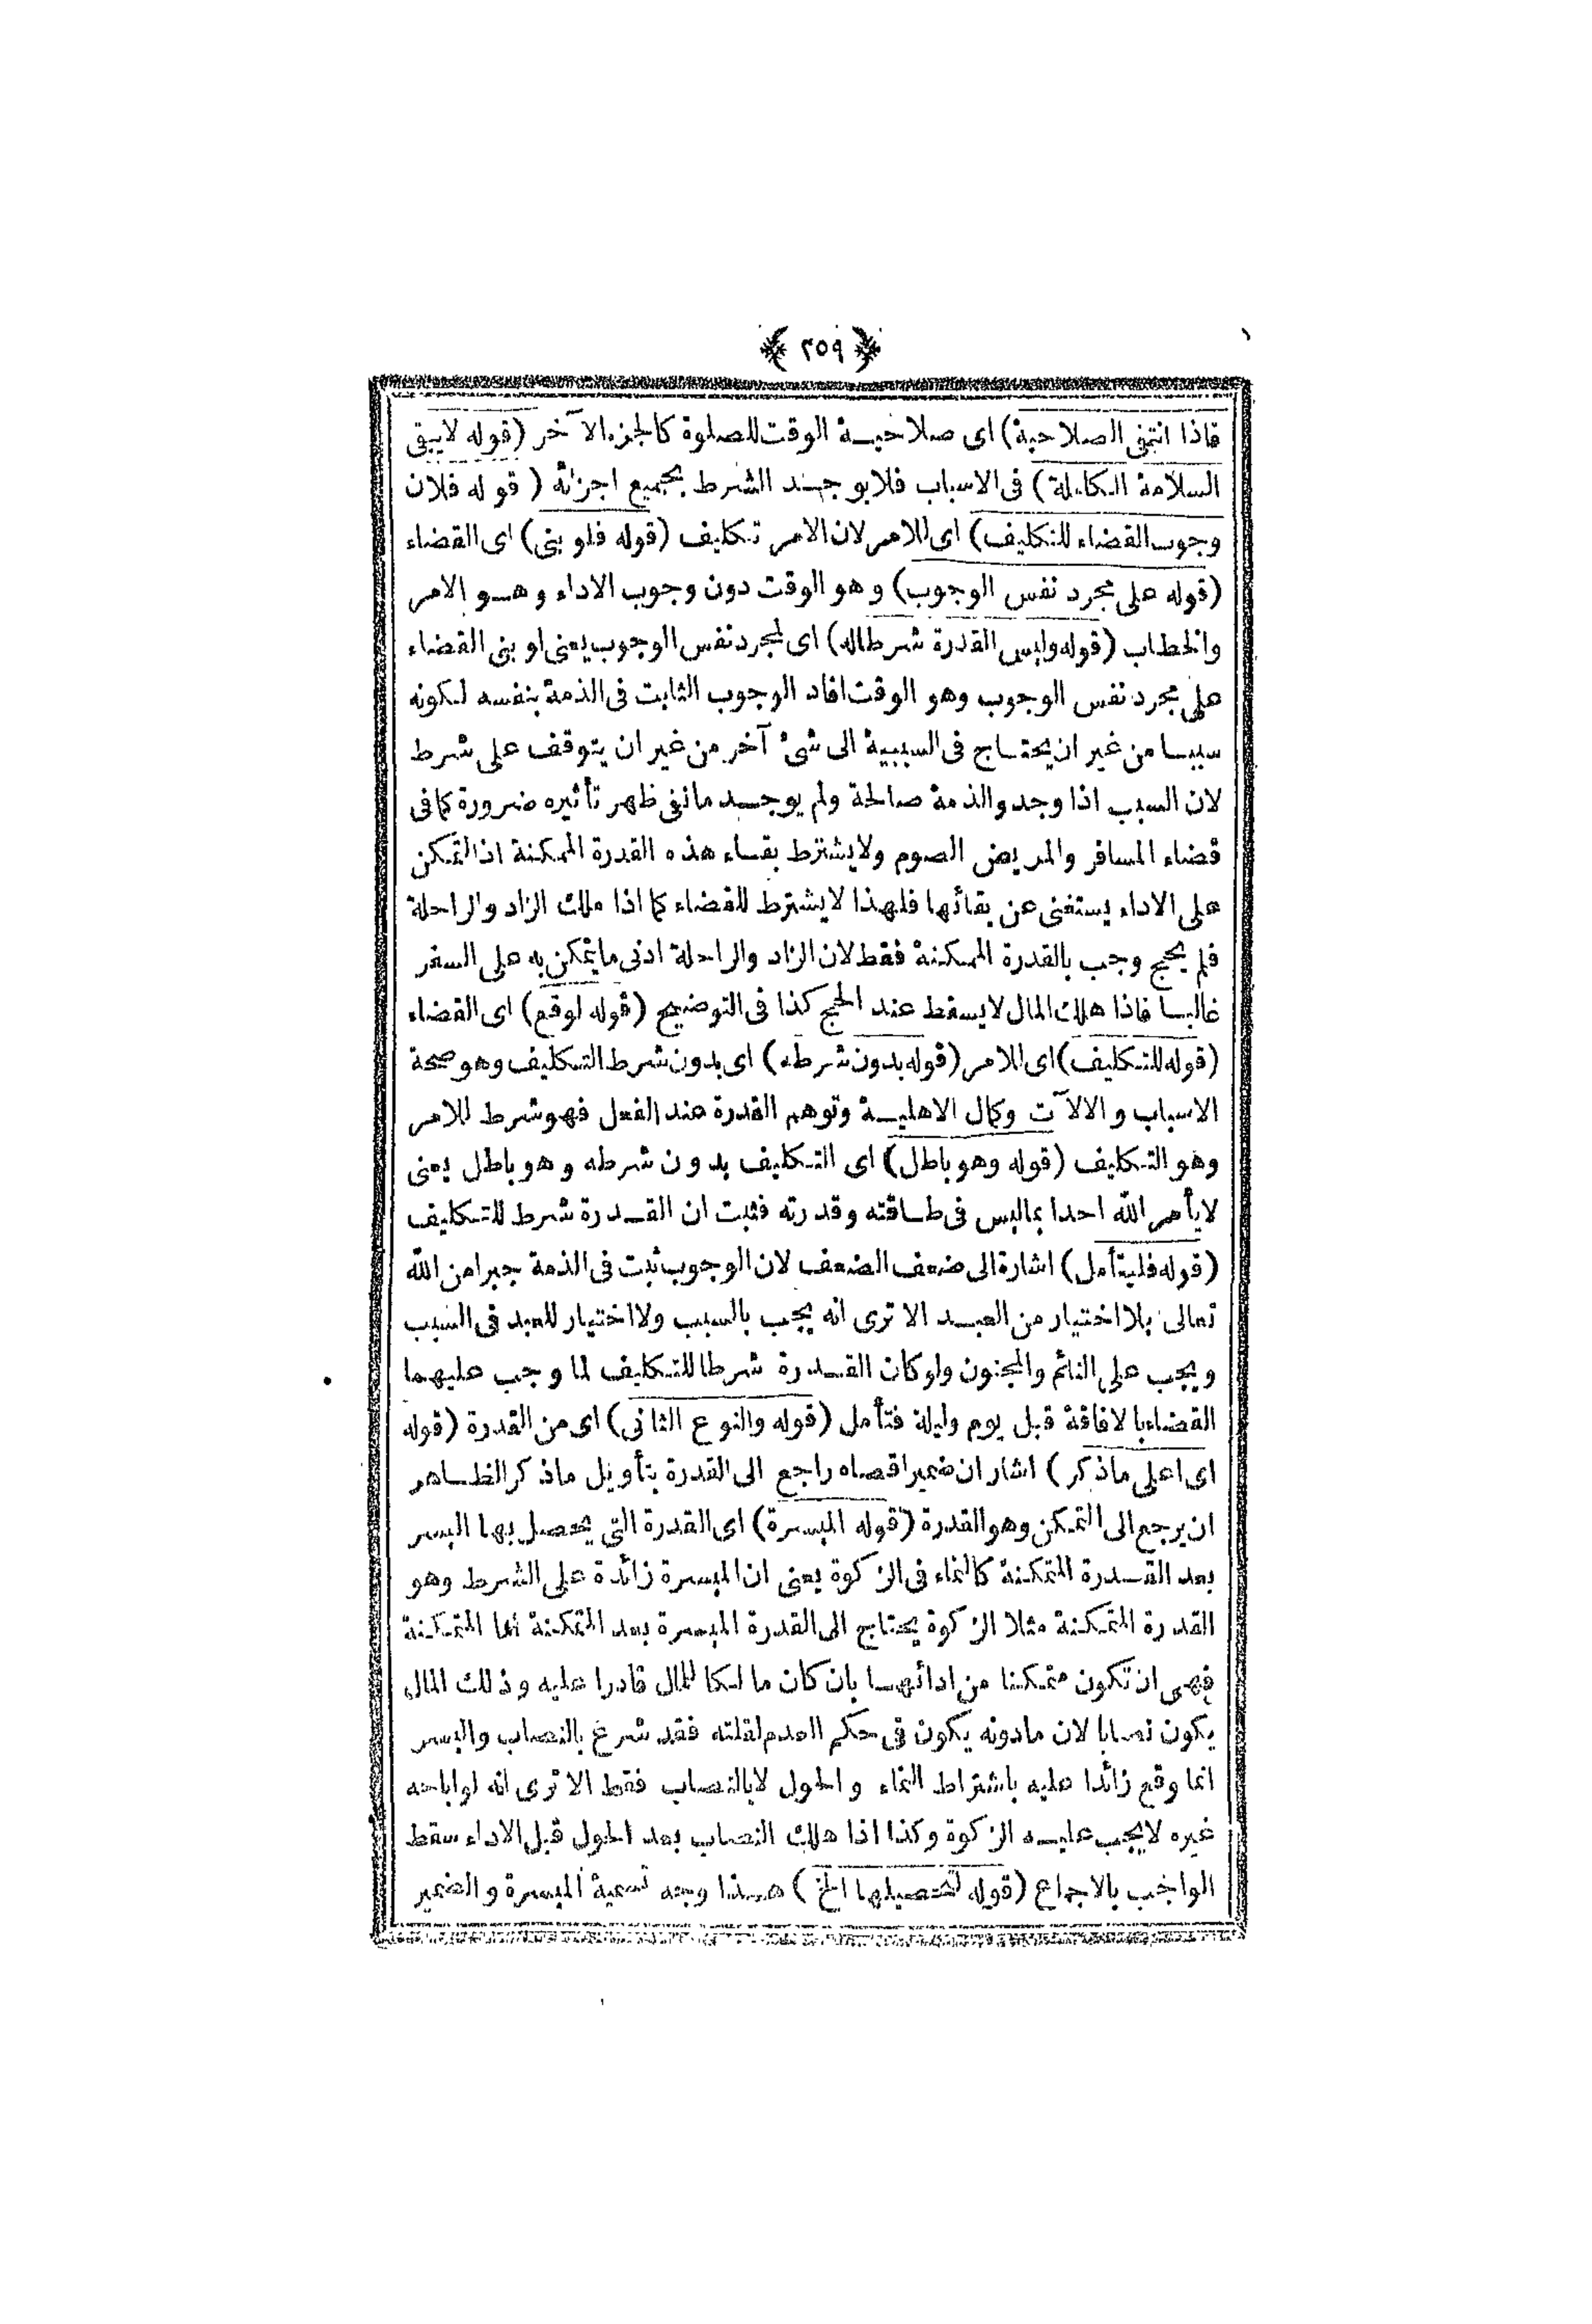 ﴿ ٢٥٩ ﴾
فاذا انتفى الصلاحية) اى صلاحيـة الوقت للصلوة كالجزء الآخر (قوله لايبقى
السلامة الكاملة) فى الاسباب فلابو جـد الشرط بجميع اجزائه (قوله فلان
وجوب القضاء للتكليف) اى للامر لان الامر تكليف (قوله فلو بنى) اى القضاء
(قوله على مجرد نفس الوجوب) وهو الوقت دون وجوب الاداء وهـو الامر
والخطاب (قوله وليس القدرة شرطاله) اى لمجرد نفس الوجوب يعنى لو بنى القضاء
على مجرد نفس الوجوب وهو الوقت افاد الوجوب الثابت فى الذمة بنفسه لكونه
سببـا من غير ان يحتـاج فى السببية الى شئ آخر من غير ان يتوقف على شرط
لان السبب اذا وجد والذمة صالحة ولم يوجـد مانفى ظهر تأثيره ضرورة كما فى
قضاء المسافر والمريض الصوم ولايشترط بقـاء هذه القدرة الممكنة اذ التمكن
على الاداء يستغنى عن بقائها فلهذا لايشترط للقضاء كما اذا ملك الزاد والراحلة
فلم يحج وجب بالقدرة الممكنة فقط لان الزاد والراحلة ادنى مايتمكن به على السفر
غالبـا فاذا هلك المال لايسقط عند الحج كذا فى التوضيح (قوله لوقع) اى القضاء
(قوله للتكليف) اى للامر (قوله بدون شرطه) اى بدون شرط التكليف وهو صحة
الاسباب والالآت وكمال الاهليـة وتوهم القدرة عند الفعل فهو شرط للامر
وهو التكليف (قوله وهو باطل) اى التكليف بدون شرطه وهو باطل يعنى
لايأمر الله احدا بماليس فى طـاقته وقدرته فثبت ان القـدرة شرط للتكليف
(قوله فليتأمل) اشارة الى ضعف الضعف لان الوجوب ثبت فى الذمة جبرا من الله
تعالى بلا اختيار من العبـد الا ترى انه يجب بالسبب ولا اختيار للعبد فى السبب
ويجب على النائم والمجنون ولو كان القـدرة شرطا للتكليف لما وجب عليهما
القضاء بالافاقة قبل يوم وليلة فتأمل (قوله والنوع الثانى) اى من القدرة (قوله
اى اعلى ماذكر) اشار ان ضمير اقصاه راجع الى القدرة بتأويل ماذكر الظـاهر
ان يرجع الى التمكن وهو القدرة (قوله الميسرة) اى القدرة التى يحصل بها اليسر
بعد القـدرة المتمكنة كالنماء فى الزكوة يعنى ان الميسرة زائدة على الشرط وهو
القدرة المتمكنة مثلا الزكوة يحتاج الى القدرة الميسرة بعد المتمكنة اما المتمكنة
فهى ان تكون متمكنا من ادائهـا بان كان مالكا للمال قادرا عليه وذلك المال
يكون نصابا لان مادونه يكون فى حكم العدم لقلته فقد شرع بالنصاب واليسر
انما وقع زائدا عليه باشتراط النماء والحول لابالنصاب فقط الا ترى انه لو اباحه
غيره لايجب عليـه الزكوة وكذا اذا هلك النصاب بعد الحول قبل الاداء سقط
الواجب بالاجماع (قوله لتحصيلها الخ) هـذا وجه تسمية الميسرة والضمير